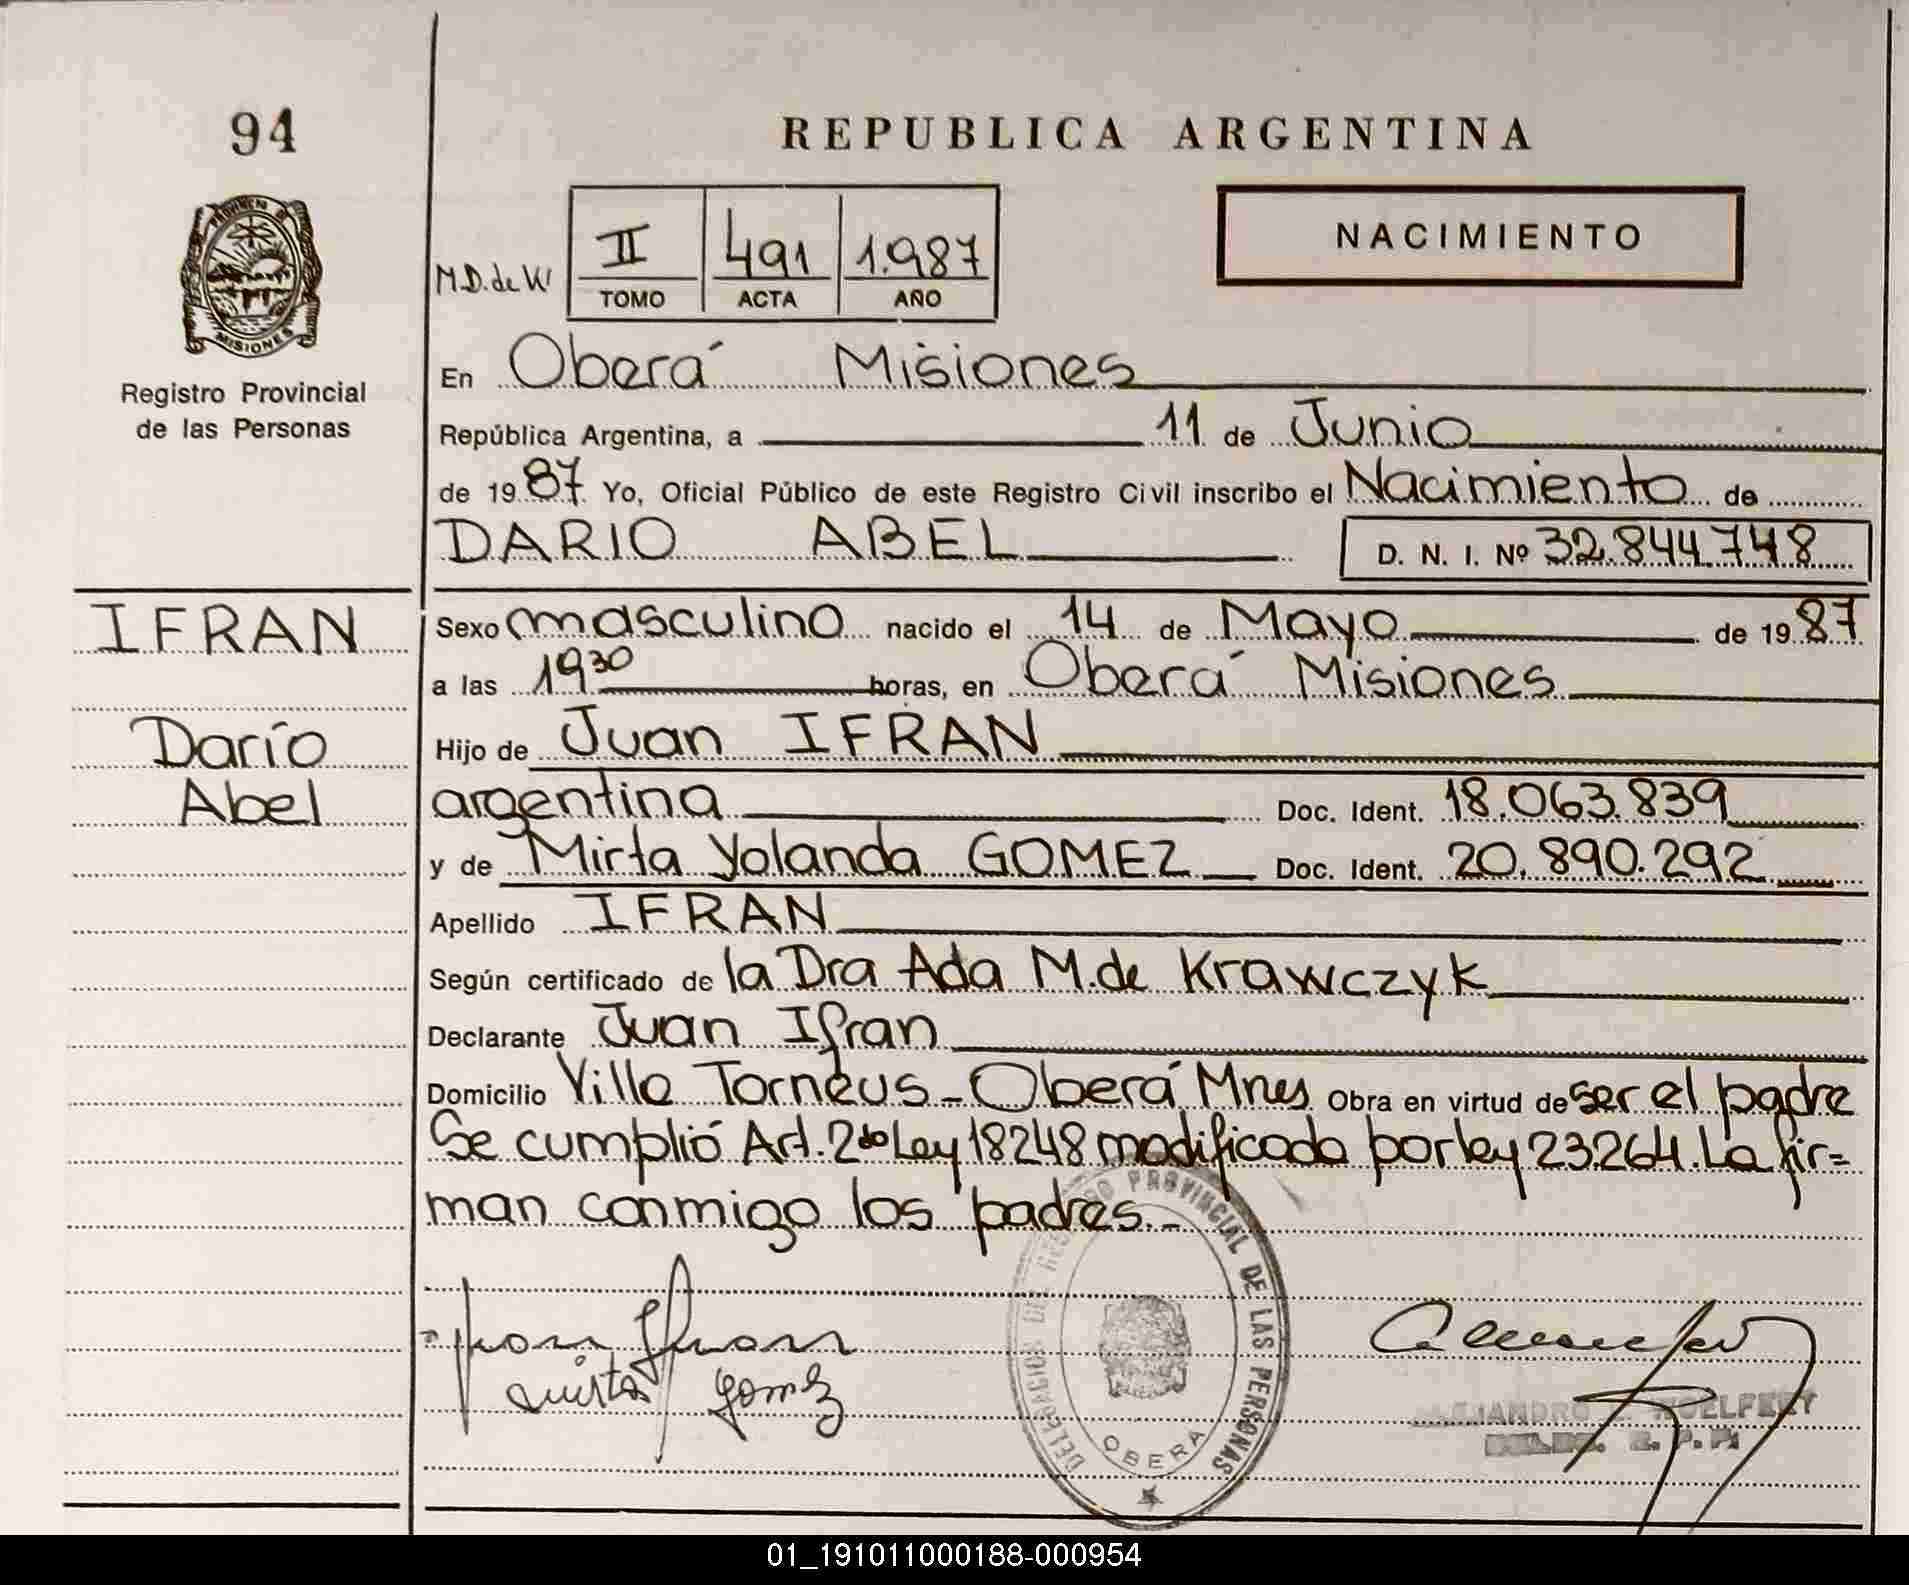 94
REPUBLICA ARGENTINA
NACIMIENTO
M.D. de W
II 491 1.987
TOMO ACTA AÑO
PROVINCIA DE
MISIONES
Registro Provincial
de las Personas
En Oberá Misiones
República Argentina, a 11 de Junio
de 1987 Yo, Oficial Público de este Registro Civil inscribo el Nacimiento de
DARIO ABEL D. N. I. Nº 32.844.748
IFRAN
Darío
Abel
Sexo masculino nacido el 14 de Mayo de 1987
a las 19 30 horas, en Oberá Misiones
Hijo de Juan IFRAN
argentina Doc. Ident. 18.063.839
y de Mirta Yolanda GOMEZ Doc. Ident. 20.890.292
Apellido IFRAN
Según certificado de la Dra Ada M. de Krawczyk
Declarante Juan Ifran
Domicilio Villa Torneus - Oberá Mnes Obra en virtud de ser el padre
Se cumplió Art. 2do Ley 18248 modificada por ley 23.264. La fir=
man conmigo los padres.-
Juan Ifran
mirta gomez
DELEGACION DEL REGISTRO PROVINCIAL DE LAS PERSONAS
OBERA
R. P. P.
01_191011000188-000954